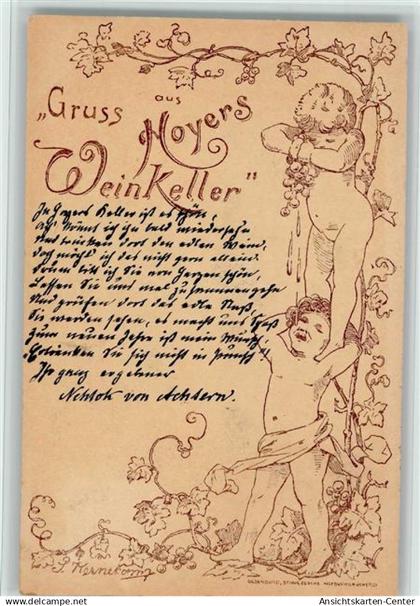 „Gruss aus
Hoyers
WeinKeller"
In Hoyers Keller ist es schön,
Ach könnt ich Sie bald wiedersehn
Und trinken dort den edlen Wein,
doch möcht ich das nicht gern allein.
Drum bitt ich Sie von Herzen schön,
Lassen Sie uns mal zusammengehn
Und prüfen dort das edle Naß,
Sie werden sehen, es macht uns Spaß
Zum neuen Jahre ist mein Wunsch,
"Betrinken Sie sich nicht in Punsch"!
Ihr ganz ergebner
von Achtern.
www.ansichtskarten-center.de
Ansichtskarten-Center